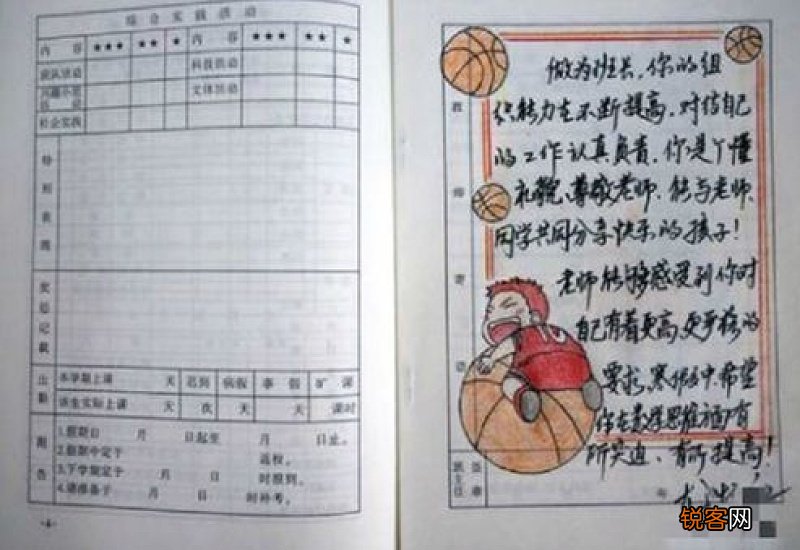 综合实践活动
内容 ★★★ ★★ ★ 内容 ★★★ ★★ ★
科技活动
文体活动
社会实践
特别表现
奖惩记载
出勤
本学期上课 天 迟到 病假 事假 旷课
该生实际上课 天 次 天 天 课时
通告
1.假期自 月 日起至 月 日止。
2.假期中定于 返校。
3.下学期定于 月 日 时报到。
4.请准备于 月 日 时补考。
·4·
教师寄语
做为班长,你的组
织能力在不断提高,对待自己
的工作认真负责,你是个懂
礼貌、尊敬老师、能与老师、
同学共同分享快乐的孩子!
老师能够感受到你对
自己有着更高、更严格的
要求,寒假中,希望
你在数学思维方面有
所突进、有所提高!
班主任
年
锐客网